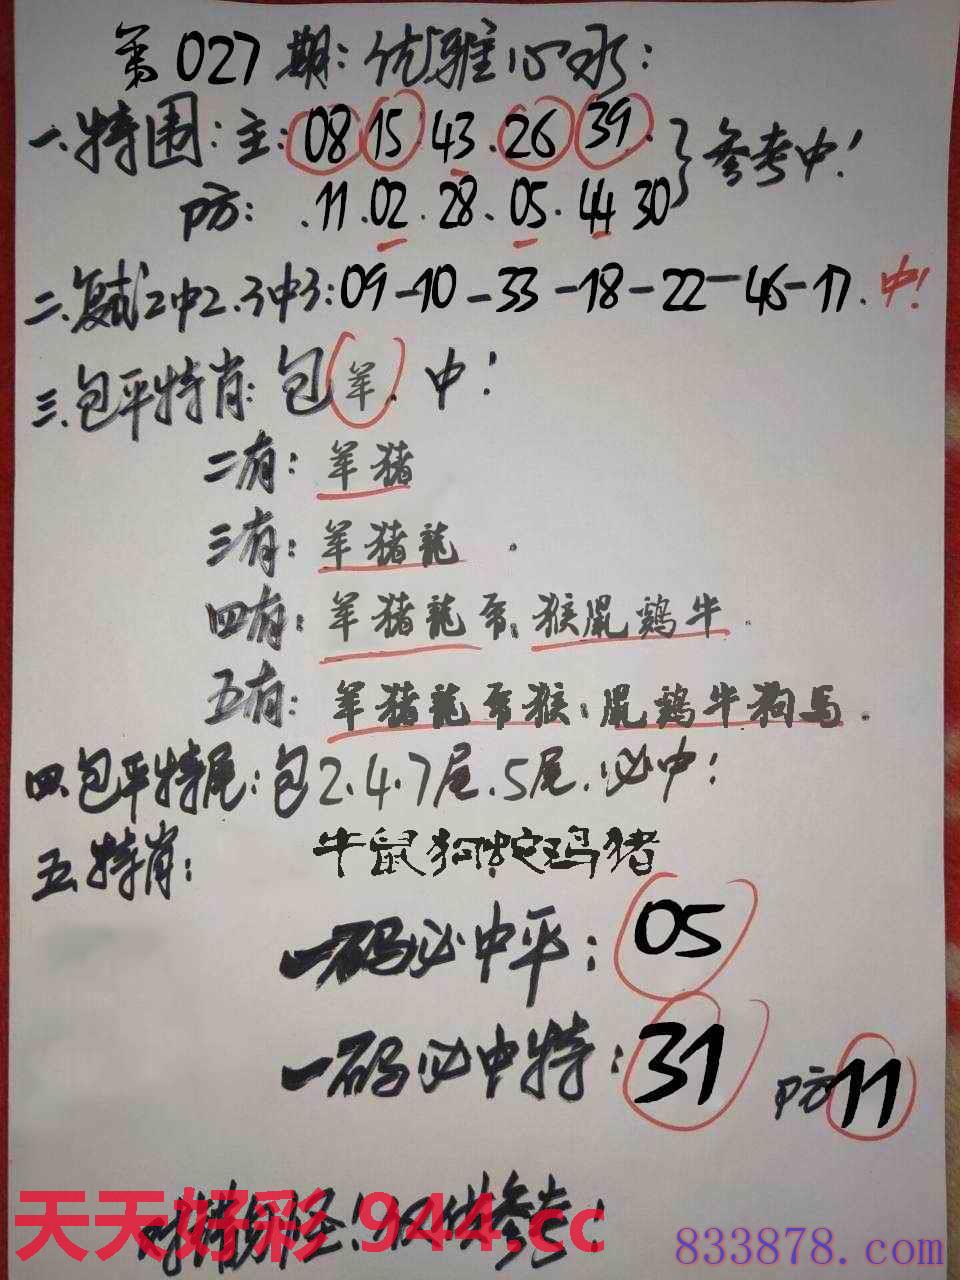 第027期:优雅心水:
一.特围:主:08 15 43.26 39.}参考中!
防:.11.02.28.05.44 30
二.复式2中2.3中3:09-10-33-18-22-46-17.中!
三.包平特肖:包羊.中!
二有:羊猪
三有:羊猪龍.
四有:羊猪龍.猴鼠鷄牛.
五有:羊猪龍猴:鼠鷄牛狗马.
四.包平特尾:包2.4.7尾.5尾.必中!
五.特肖:牛鼠狗蛇鸡猪
一码必中平:05
一码必中特:31 防11
天天好彩944.cc
仅供参考!
833878.com